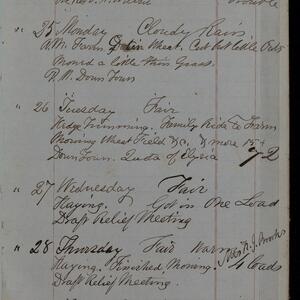 " 25 Monday Cloudy Rain
A.M. Farm in Wheat. Cut little Oats
Mowed a little thin Grass.
P.M. Down Town
" 26 Tuesday Fair
Hedge Trimming. Family Ride to Farm
Mowing Wheat Field & more
Down Town. of Elyria 72
" 27 Wednesday Fair
Haying. Got in One Load
Draft Relief Meeting
" 28 Thursday Fair warm
Haying. Finished Mowing. 4 loads
Draft Relief Meeting.